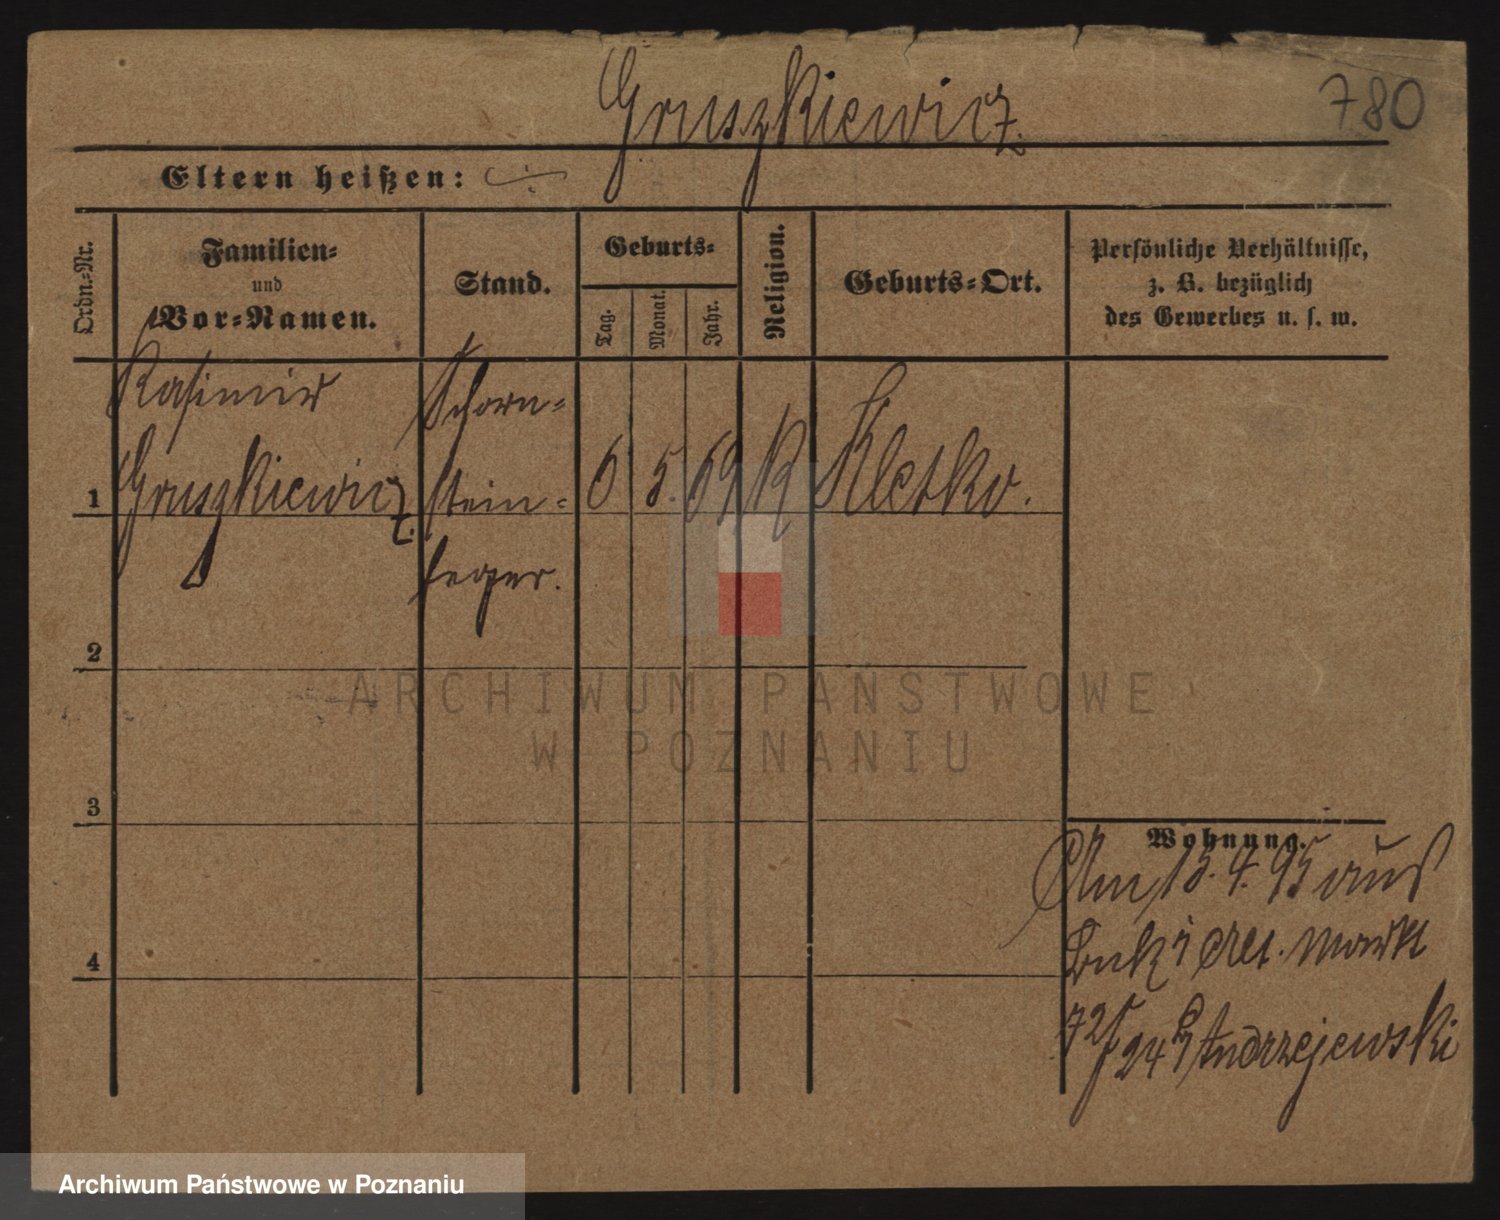 Gruszkiewicz
780
Eltern heißen:
Ordn.-Nr.
Familien-
und
Vor-Namen.
Stand.
Geburts-
Tag.
Monat.
Jahr.
Religion.
Geburts-Ort.
Persönliche Verhältnisse,
z. B. bezüglich
des Gewerbes u. s. w.
Kasimir
Schorn-
1
Gruszkiewicz.
stein-
6
5.
69
K
Kletzko.
feger.
2
3
4
Wohnung.
Am 15.4.95 aus
Markt
72/24 b/ Andrzejewski
ARCHIWUM PAŃSTWOWE
W POZNANIU
Archiwum Państwowe w Poznaniu